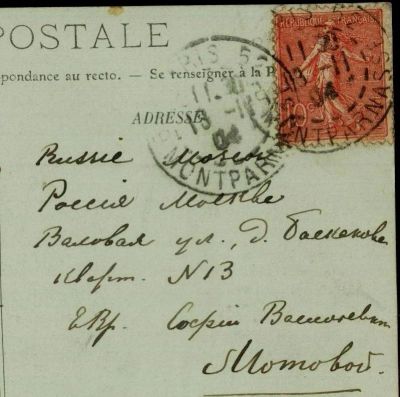 POSTALE
pondance au recto. — Se renseigner à la P
ADRESSE
REPUBLIQUE FRANÇAISE
PARIS
MONTPARNASSE
Russie Moscou
Россия Москве
Валовая ул., д. Баскакова
Кварт. N 13
Е.Вр. Софьи Васильевны
Мотовой.